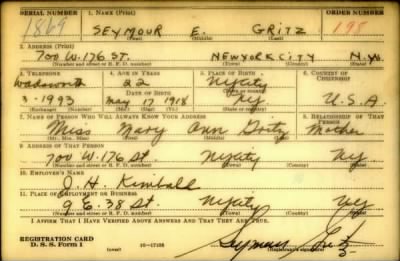 SERIAL NUMBER 1. NAME (Print) ORDER NUMBER
1869 SEYMOUR E. GRITZ 198
(First) (Middle) (Last)
2. ADDRESS (Print)
700 W. 176 ST. NEW YORK CITY N.Y.
(Number and street or R. F. D. number) (Town) (County) (State)
3. TELEPHONE 4. AGE IN YEARS 5. PLACE OF BIRTH 6. COUNTRY OF CITIZENSHIP
Wadsworth 22 NY City
DATE OF BIRTH (Town or county)
3-1993 May 17 1918 NY U.S.A
(Exchange) (Number) (Mo.) (Day) (Yr.) (State or country)
7. NAME OF PERSON WHO WILL ALWAYS KNOW YOUR ADDRESS 8. RELATIONSHIP OF THAT PERSON
Miss Mary Ann Gritz Mother
(Mr., Mrs., Miss) (First) (Middle) (Last)
9. ADDRESS OF THAT PERSON
700 W. 176 St. NY City NY
(Number and street or R. F. D. number) (Town) (County) (State)
10. EMPLOYER'S NAME
J. H. Kimball
11. PLACE OF EMPLOYMENT OR BUSINESS
9 E. 38 St. NY City NY
(Number and street or R. F. D. number) (Town) (County) (State)
I AFFIRM THAT I HAVE VERIFIED ABOVE ANSWERS AND THAT THEY ARE TRUE.
REGISTRATION CARD
D. S. S. Form 1 (over) 16—17105 Seymour Gritz
(Registrant's signature)